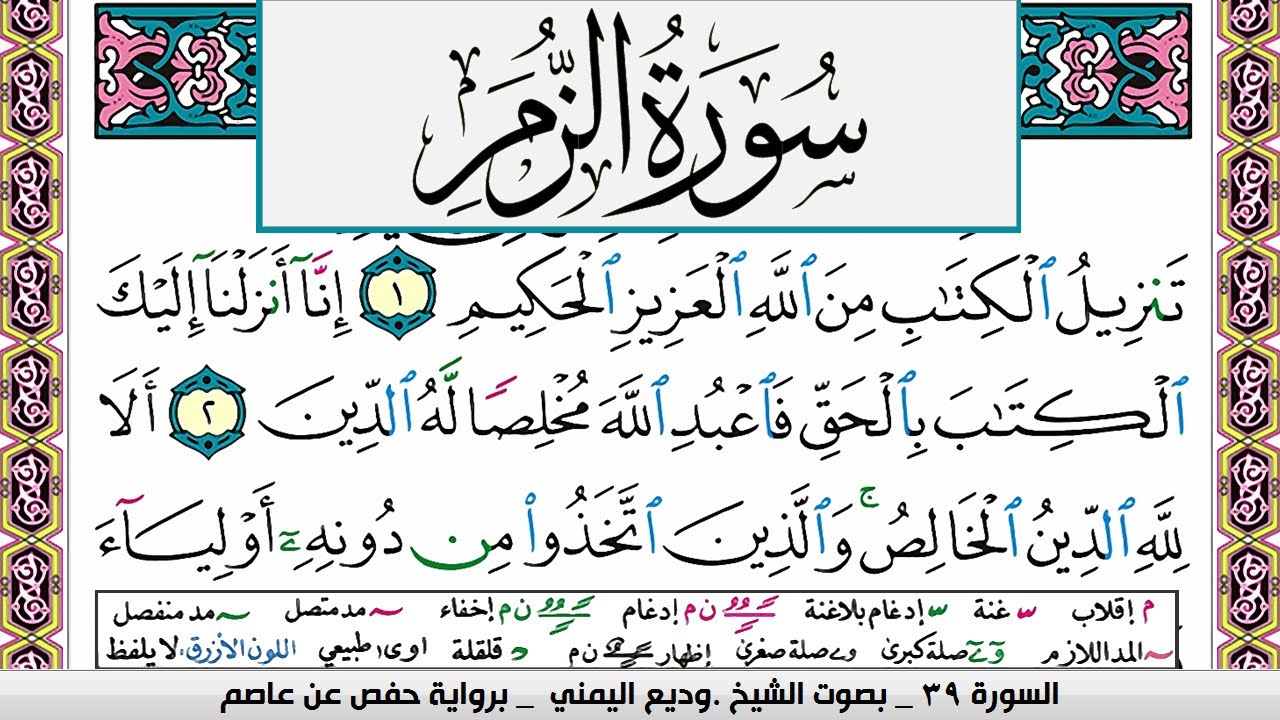 سُورَةُ الزُّمَرِ
تَنزِيلُ ٱلْكِتَـٰبِ مِنَ ٱللَّهِ ٱلْعَزِيزِ ٱلْحَكِيمِ ١ إِنَّآ أَنزَلْنَآ إِلَيْكَ
ٱلْكِتَـٰبَ بِٱلْحَقِّ فَٱعْبُدِ ٱللَّهَ مُخْلِصًا لَّهُ ٱلدِّينَ ٢ أَلَا
لِلَّهِ ٱلدِّينُ ٱلْخَالِصُ ۚ وَٱلَّذِينَ ٱتَّخَذُوا۟ مِن دُونِهِۦٓ أَوْلِيَآءَ
م إقلاب ـس غنة ـس إدغام بلاغنة ن م إدغام ن م إخفاء ~ مد متصل ~ مد منفصل
~ المد اللازم وے صلة كبرىٰ وے صلة صغرىٰ إظهار ن م د قلقلة اوى طبيعي اللون الأزرق: لا يلفظ
السورة ٣٩ _ بصوت الشيخ .وديع اليمني _ برواية حفص عن عاصم